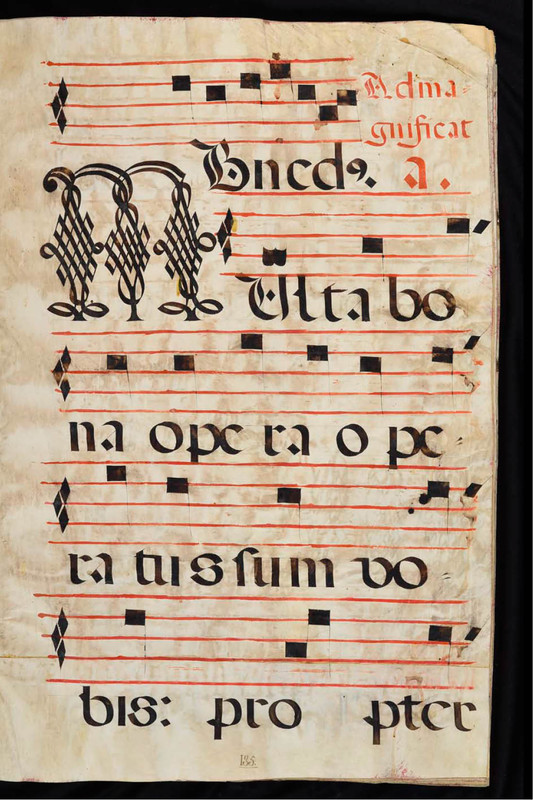 Ad ma-
gnificat
Bñcdꝰ. a.
MUlta bo
na ope ra o pe-
ra tus sum vo-
bis: pro pter
185.